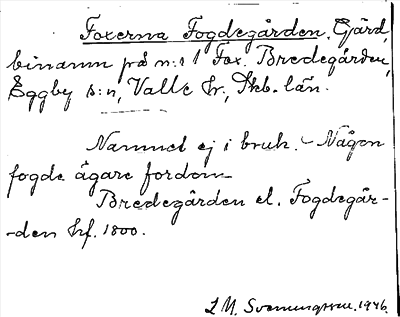 Foxerna Fogdegården. Gård,
binamn på n:r 1 Fox. Bredegården,
Eggby s:n, Valle hr., Skb. län.
Namnet ej i bruk. – Någon
fogde ägare fordom
Bredegården el. Fogdegår-
-den hf. 1800.
L M. Svenungsson. 1946.